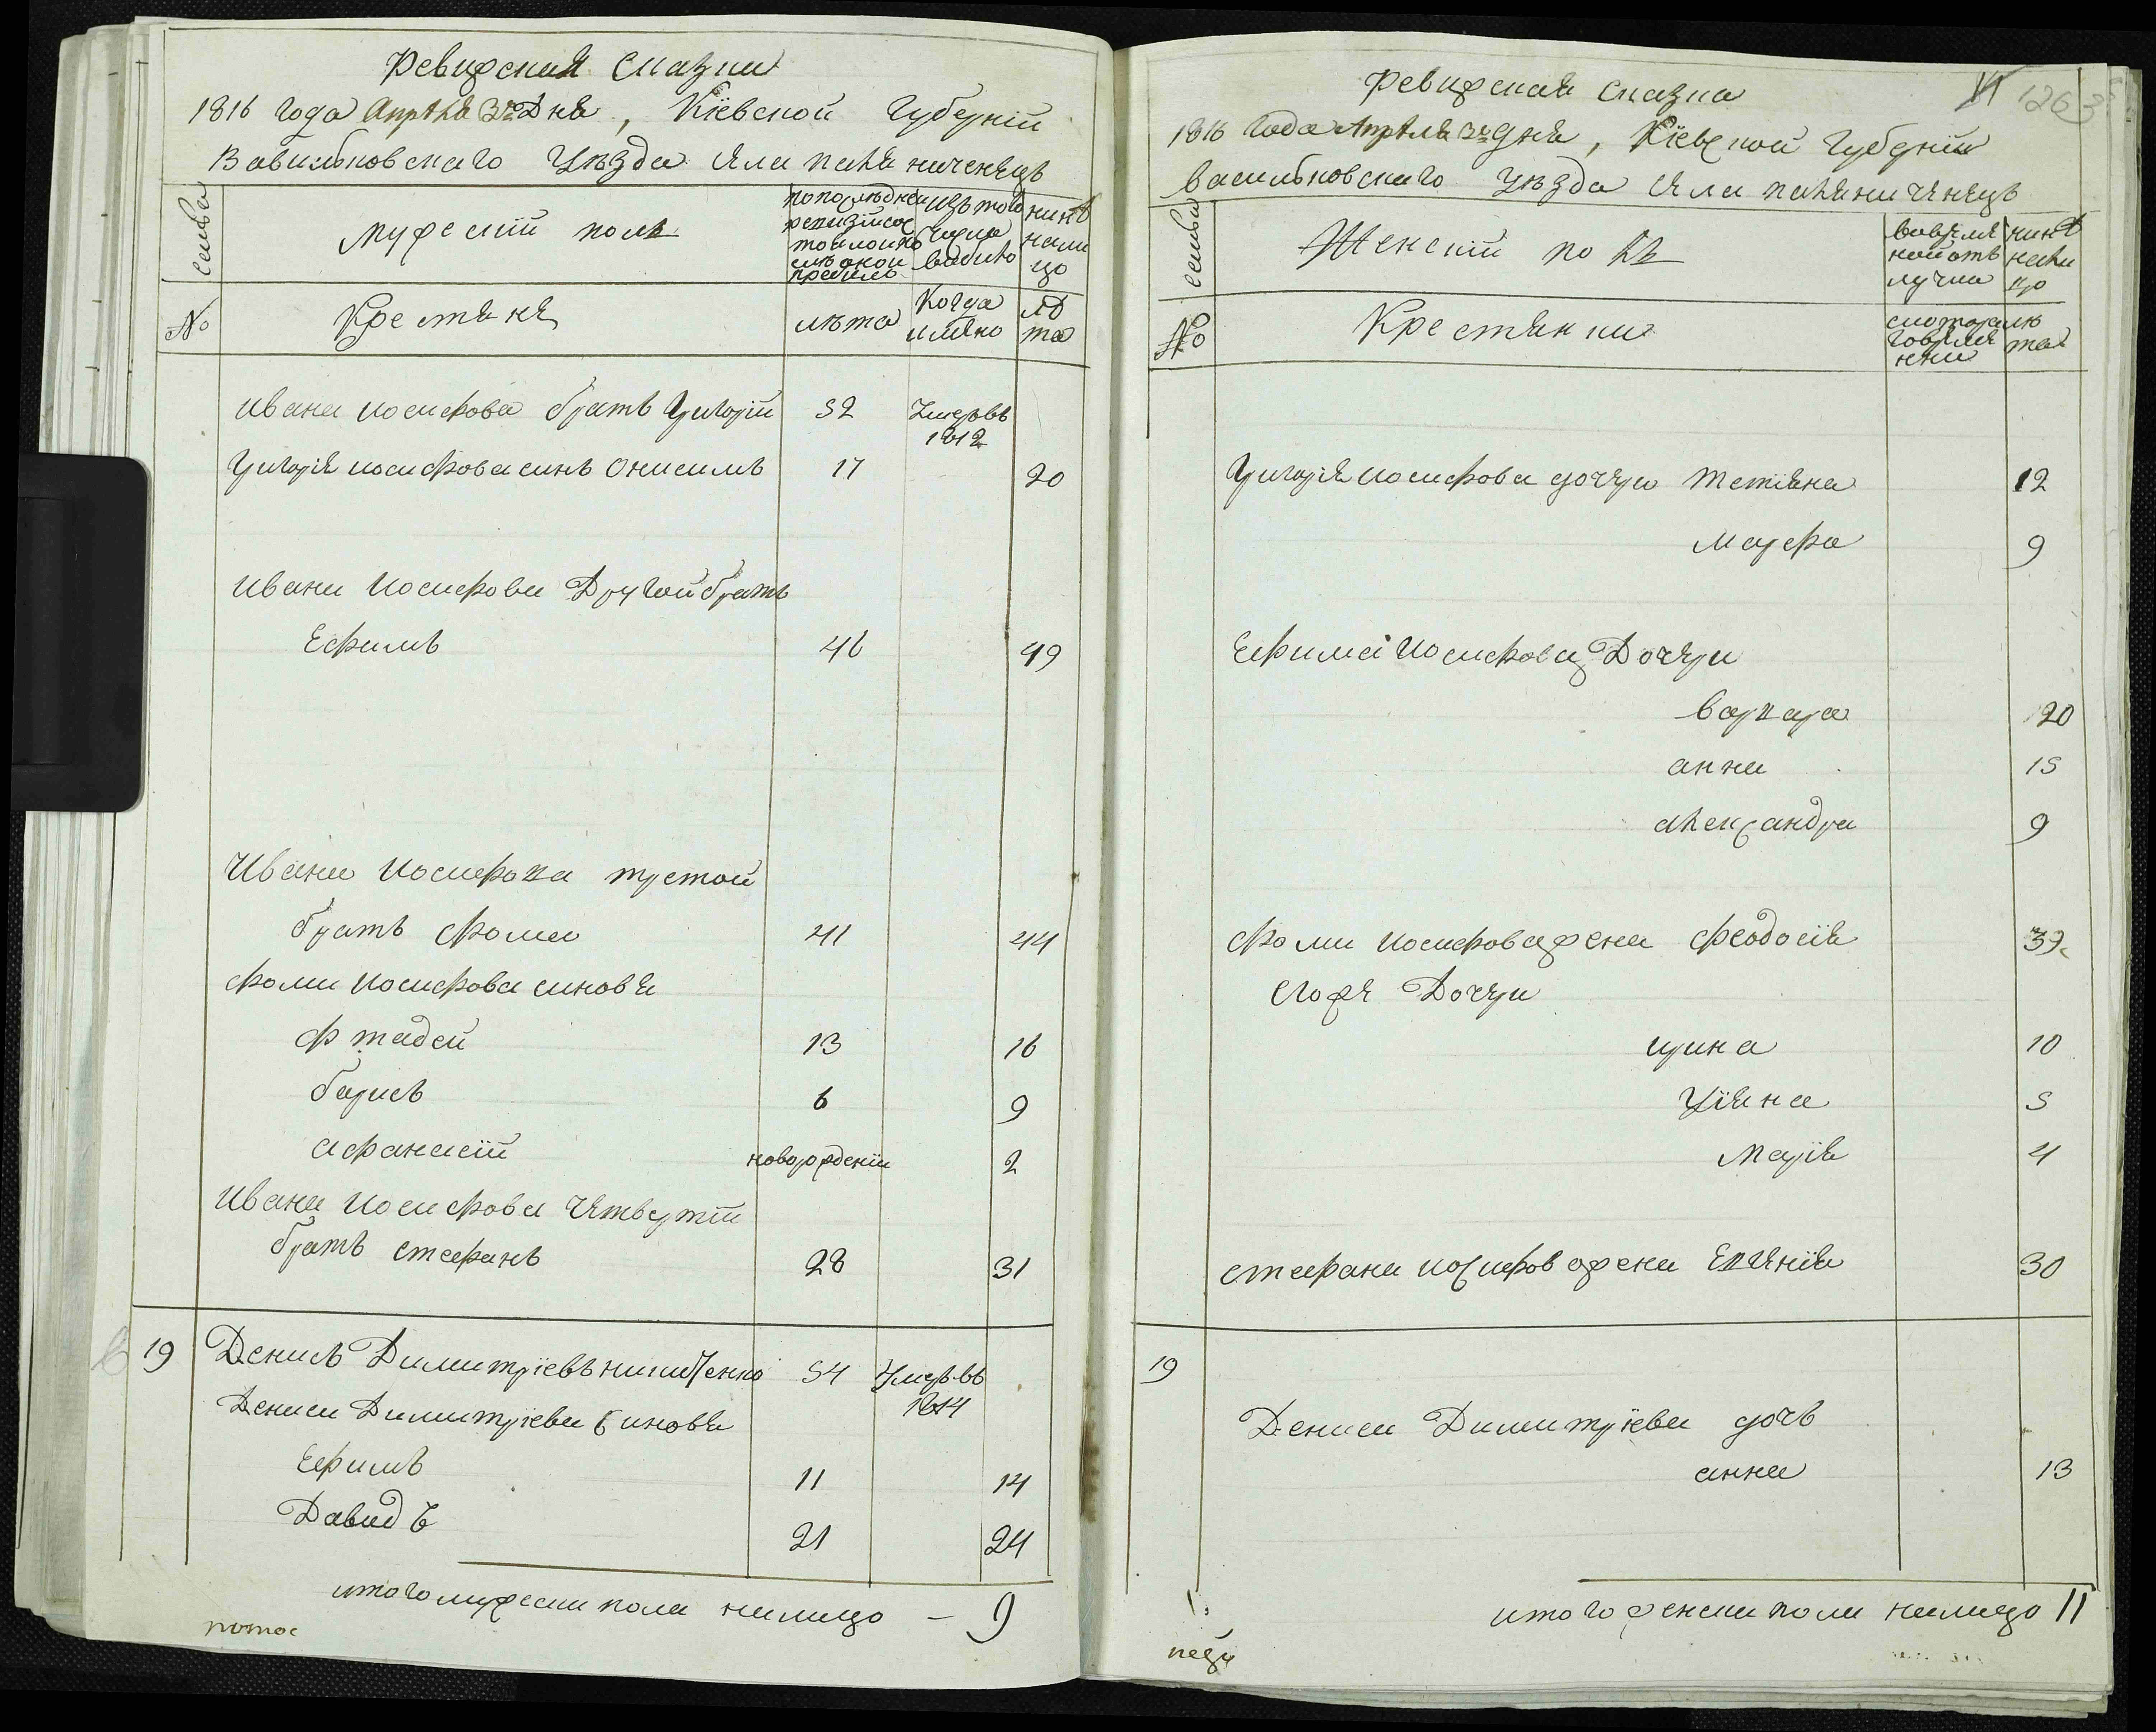 Ревизская Сказки
1816 года Апрѣля 3го Дня, Кіевской Губерніи
Васильковскаго Уѣзда
семьи
мужескій полъ
по послѣдней ревизіи состояло и послѣ оной прибыло
изъ того числа выбыло
нинѣ на лицо
№
Крестяне
лѣта
Когда имяно
лѣта
Ивана Иосифова братъ Григорій 52 Умеръ въ 1812
Григорія Иосифова синъ Онисимъ 17 20
Ивана Иосифова Другой братъ
Ефимъ 46 49
Ивана Иосифова третой
братъ Фома 41 44
Фоми Иосифова синовя
Фтадей 13 16
Барисъ 6 9
Афанасій новорожденій 2
Ивана Иосифова Четвертій
братъ Стефанъ 28 31
19 Денисъ Димитріевъ Никитенко 54 Умеръ въ 1814
Дениса Димитріева Синовя
Ефимъ 11 14
Давидъ 21 24
итого мужеска пола налицо — 9
Ревизская Сказка
126
1816 Года Апрѣля 3го дня, Кіевской Губерніи
Васильковскаго Уѣзда
семьи
Женскій полъ
во временной отлучки
нинѣ на лицо
№
Крестянки
с которого времени
лѣта
Григорія Иосифова дочери Тетіяна 12
Марфа 9
Ефима Иосифова Дочери
Варвара 20
Анна 15
Александра 9
Фоми Иосифова жена Феодосія 39
Егоже Дочери
Ирина 10
Уліяна 5
Марія 4
Стефана Иосифова жена Евгенія 30
19
Дениса Димитріева дочь
Анна 13
итого женска пола налицо 11